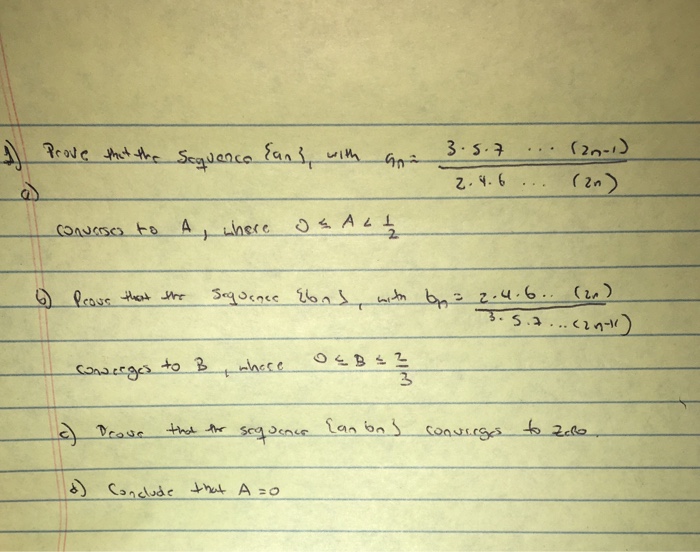 1) Prove that the Sequence {an}, with an = 3·5·7 ... (2n-1) / 2.4.6 ... (2n)
a)
converges to A, where 0 ≤ A < 1/2
b) Prove that the sequence {bn}, with bn = 2.4.6.. (2n) / 3.5.7...(2n-1)
converges to B, where 0 ≤ B ≤ 2/3
c) Prove that the sequence {an bn} converges to zero.
d) Conclude that A = 0